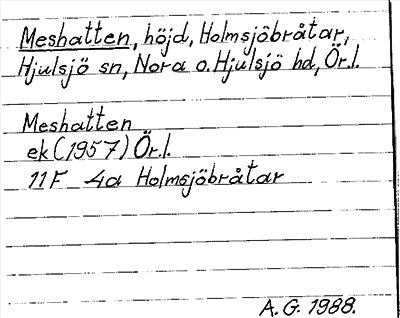 Meshatten, höjd, Holmsjöbråtar,
Hjulsjö sn, Nora o. Hjulsjö hd, Ör.l.
Meshatten
ek (1957) Ör.l.
11F 4a Holmsjöbråtar
A.G. 1988.